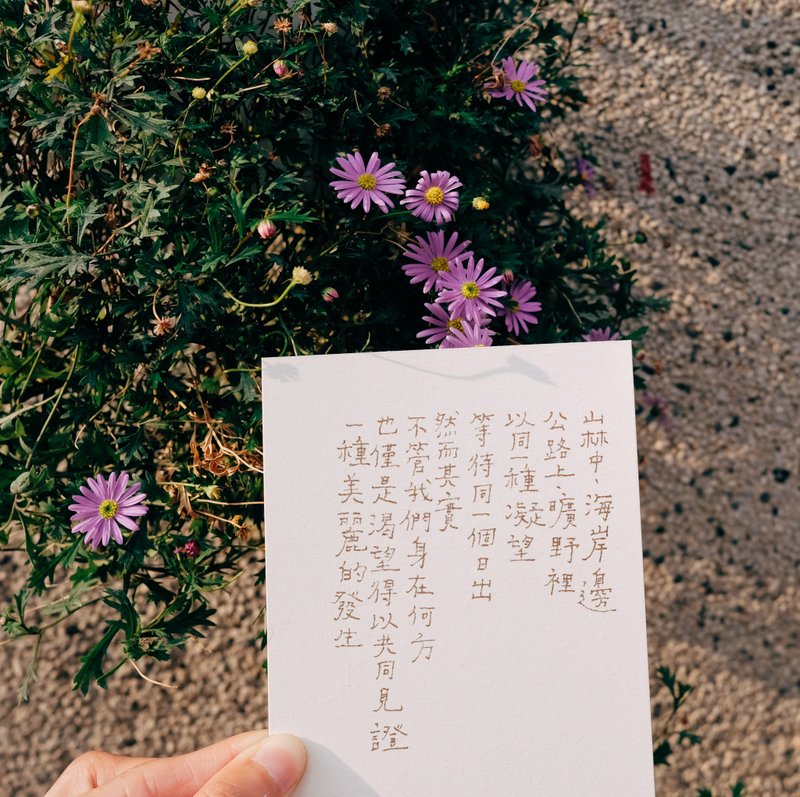 山林中、海岸邊
公路上、曠野裡
以同一種凝望
等待同一個日出
然而其實
不管我們身在何方
也僅是渴望得以共同見證
一種美麗的發生